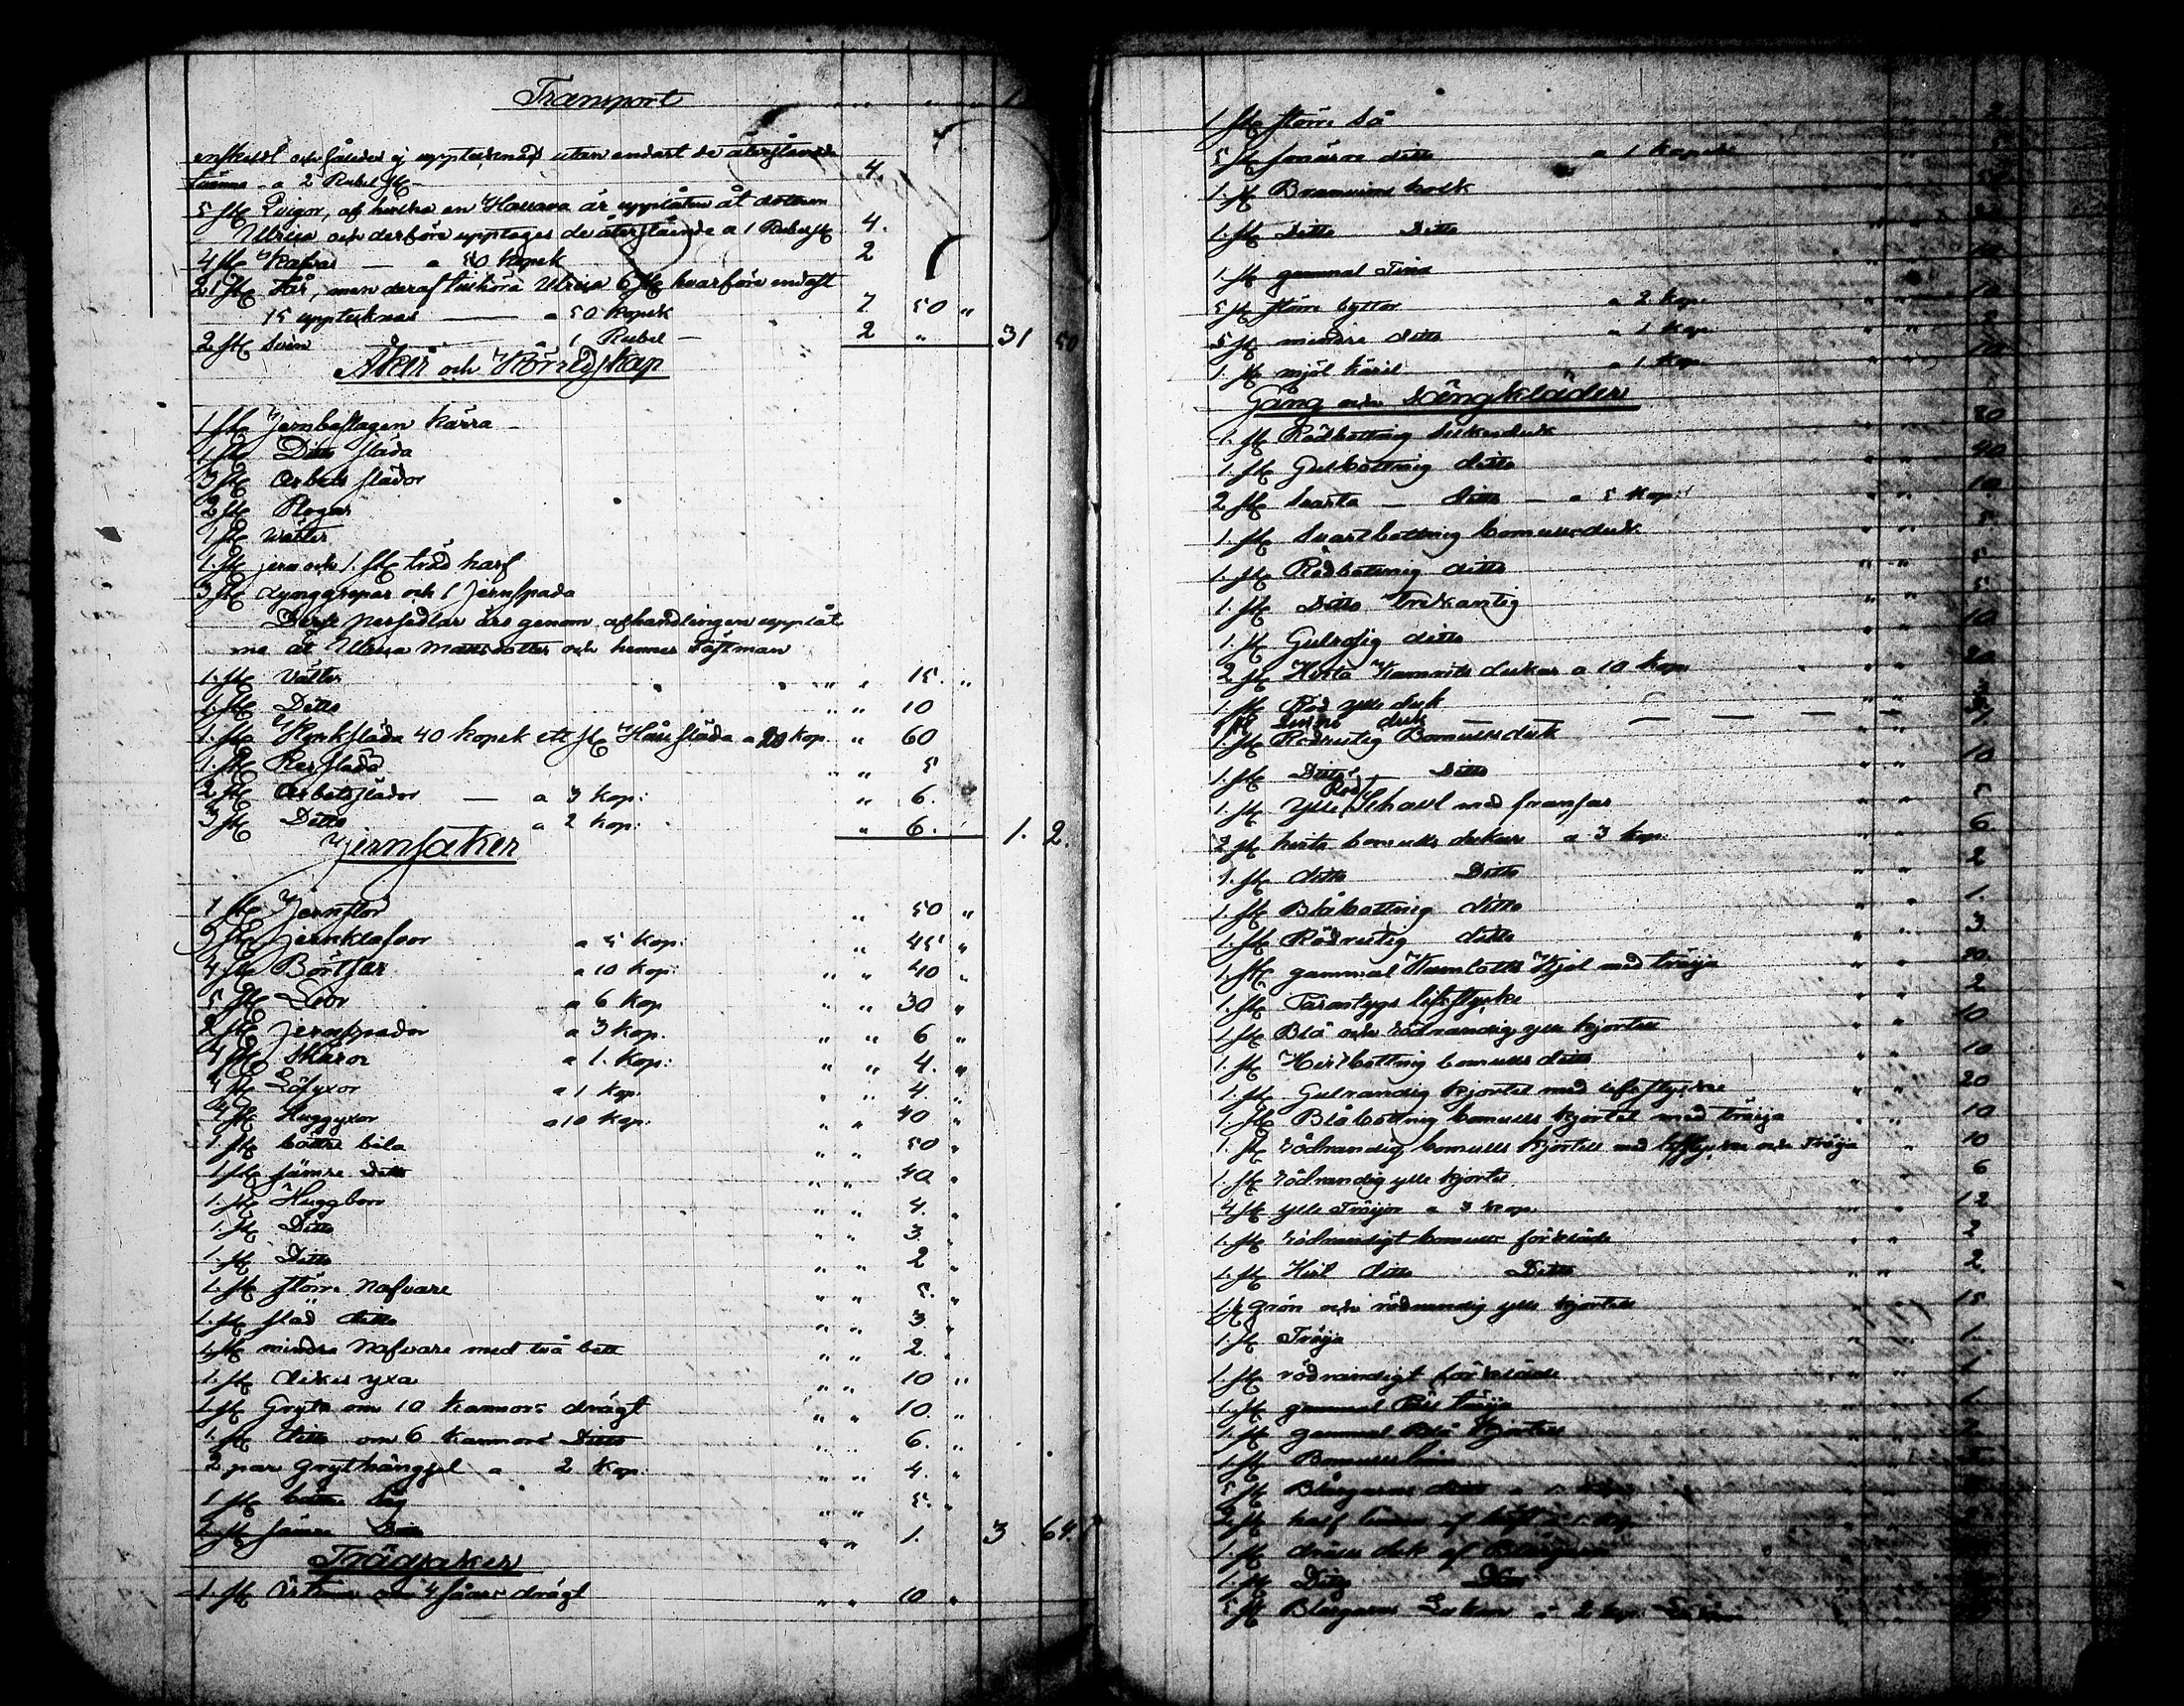 Transport
enskildt och således ej upptecknad utan endast de återstående
tvänne - a 2 Rubel st - 4.
5 st Qvigor, af hvilka en Havana är upplåten åt dottren
Ulrica och derföre upptages de återstående a 1 Rubel st 4.
4 st Kalfvar — a 50 kopek 2
21 st Får, men deraf tillhöra Ulrica 6 st hvarföre endast
15 upptecknas — a 50 kopek 7 50 "
2 st Svin 1 Rubel — 2 " 31 50
Åker och Körredskap
1 st Jernbeslagen kärra
1 st Ditto släda
3 st Arbets slädor
2 st Plogar
1 st Wälter
1. st jern och 1. st träd harf
3 st dynggrepar och 1 Jernspada
Desse persedlar äro genom afhandlingen upplåt
na åt Ulrica Mattsdotter och hennes Fästman
1. st Välter " " 15. "
1. st Ditto " " 10
1. st Kyrksläda 40 kopek ett st släda a 20 kop. " 60
1. st Ressläda " " 5
2 st Arbetsslädor — a 3 kop: " 6.
3 st Ditto a 2 kop: " 6. 1. 2.
Jernsaker
1 st Jernstör " 50 "
9 st jernklafvor a 5 kop: " 45 "
4 st Börtsar a 10 kop: " " 40 "
5 st Liar a 6 kop " " 30 "
2 st jernspador a 3 kop. " " 6 "
4 st Skäror a 1. kop: " " 4. "
4 st Löfyxor a 1 kop. " " 4. "
4 st Huggyxor a 10 kop: " " 40 "
1. st bättre bila " " 50 "
1 st sämre Ditto " " 40 "
1. st Huggbor " " 4. "
1. st Ditto " " 3. "
1. st Ditto " " 2 "
1. st större Nafvare " " 5. "
1. st slad ditto " " 3 "
1. st mindre Nafvare med två bett " " 2. "
1. st dikes yxa " " 10 "
1. st Gryta om 10 kannors drägt " " 10. "
1. st ditto om 6 kannors Ditto " " 6. "
2 par Grythängsel a 2 kop. " " 4. "
1 st bättre såg " " 5. "
2 st sämre Ditto " " 1. 3 64.
Trädsaker
1. st om 4 såars drägt " " 10 "
1 st större Så
5 st smärre ditto a 1 kopek
1. st Brännvins kolk
1. st Ditto Ditto
1 st gammal Tina
5 st större byttor a 2 kop. 10
5 st mindre ditto a 1 kop. " " 5
1. st mjöl kärl a 1 kop. 10
Gång och Sängkläder
1. st Rödbottnig silkesduk 80
1. st Gulbottnig ditto " " 40
2 st Svarta — ditto — a 5 kop: " " 10
1. st Svartbottnig bomullsduk " " 5
1. st Rödbottnig ditto " " 5
1. st Ditto trekantig " " 5
1. st Gulrosig ditto " " 10
2 st Hvita Kamriks dukar a 10 kop " " 20
1 st Röd ylle duk
1 st duk — — — — —
1. st Rödrutig Bomullsduk " "
1. st Ditto Ditto " " 10
1. st Röd Ylle Schavl med fransar " " 5
2 st hvita bomulls dukar a 3 kop: " " 6.
1. st ditto Ditto " " 2
1. st Blåbottnig ditto " " 1.
1. st Rödrutig ditto " " 3
1. st gammal Kamlotts Kjol med tröja " " 20.
1. st lifstycke " " 2
1. st Blå och rödrandig ylle kjortel " " 10
1. st Hvitbottnig bomulls ditto " " 10
1. st Gulrandig kjortel med lifstycke " " 20
1. st Blåbottnig bomulls kjortel med tröja " " 10
1. st rödrandig bomulls kjortel med lifstycke och Tröja " 10
1. st rödrandig ylle kjortel " " 6
4 st ylle Tröjor a 3 kop. " " 12
1. st rödrandigt bomulls förkläde " " 2
1. st Hvit ditto Ditto " " 2.
1. st grön och rödrandig ylle kjortel " " 15
1. st Tröja " " 1.
1. st rödrandigt förkläde " " 1
1. st gammal Blå tröja " " 1.
1. st gammal Blå Kjortel " " 2.
1. st Bomulls
5 st Blårgarns ditto a
2 st half
1. st af Blårgarn
1. st Ditto Ditto
5 st Blårgarns Lakan a 2 kop